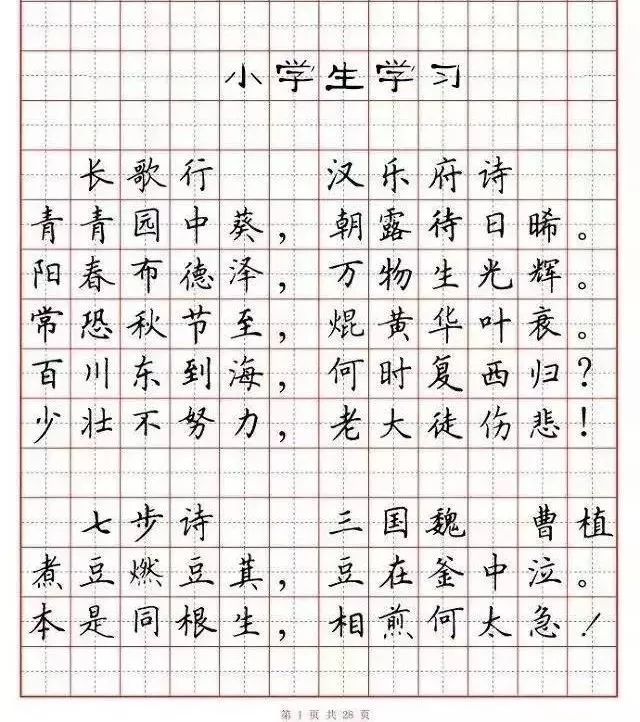 小学生学习
长歌行 汉乐府诗
青青园中葵，朝露待日晞。
阳春布德泽，万物生光辉。
常恐秋节至，焜黄华叶衰。
百川东到海，何时复西归？
少壮不努力，老大徒伤悲！
七步诗 三国魏 曹植
煮豆燃豆萁，豆在釜中泣。
本是同根生，相煎何太急！
第 1 页 共 28 页